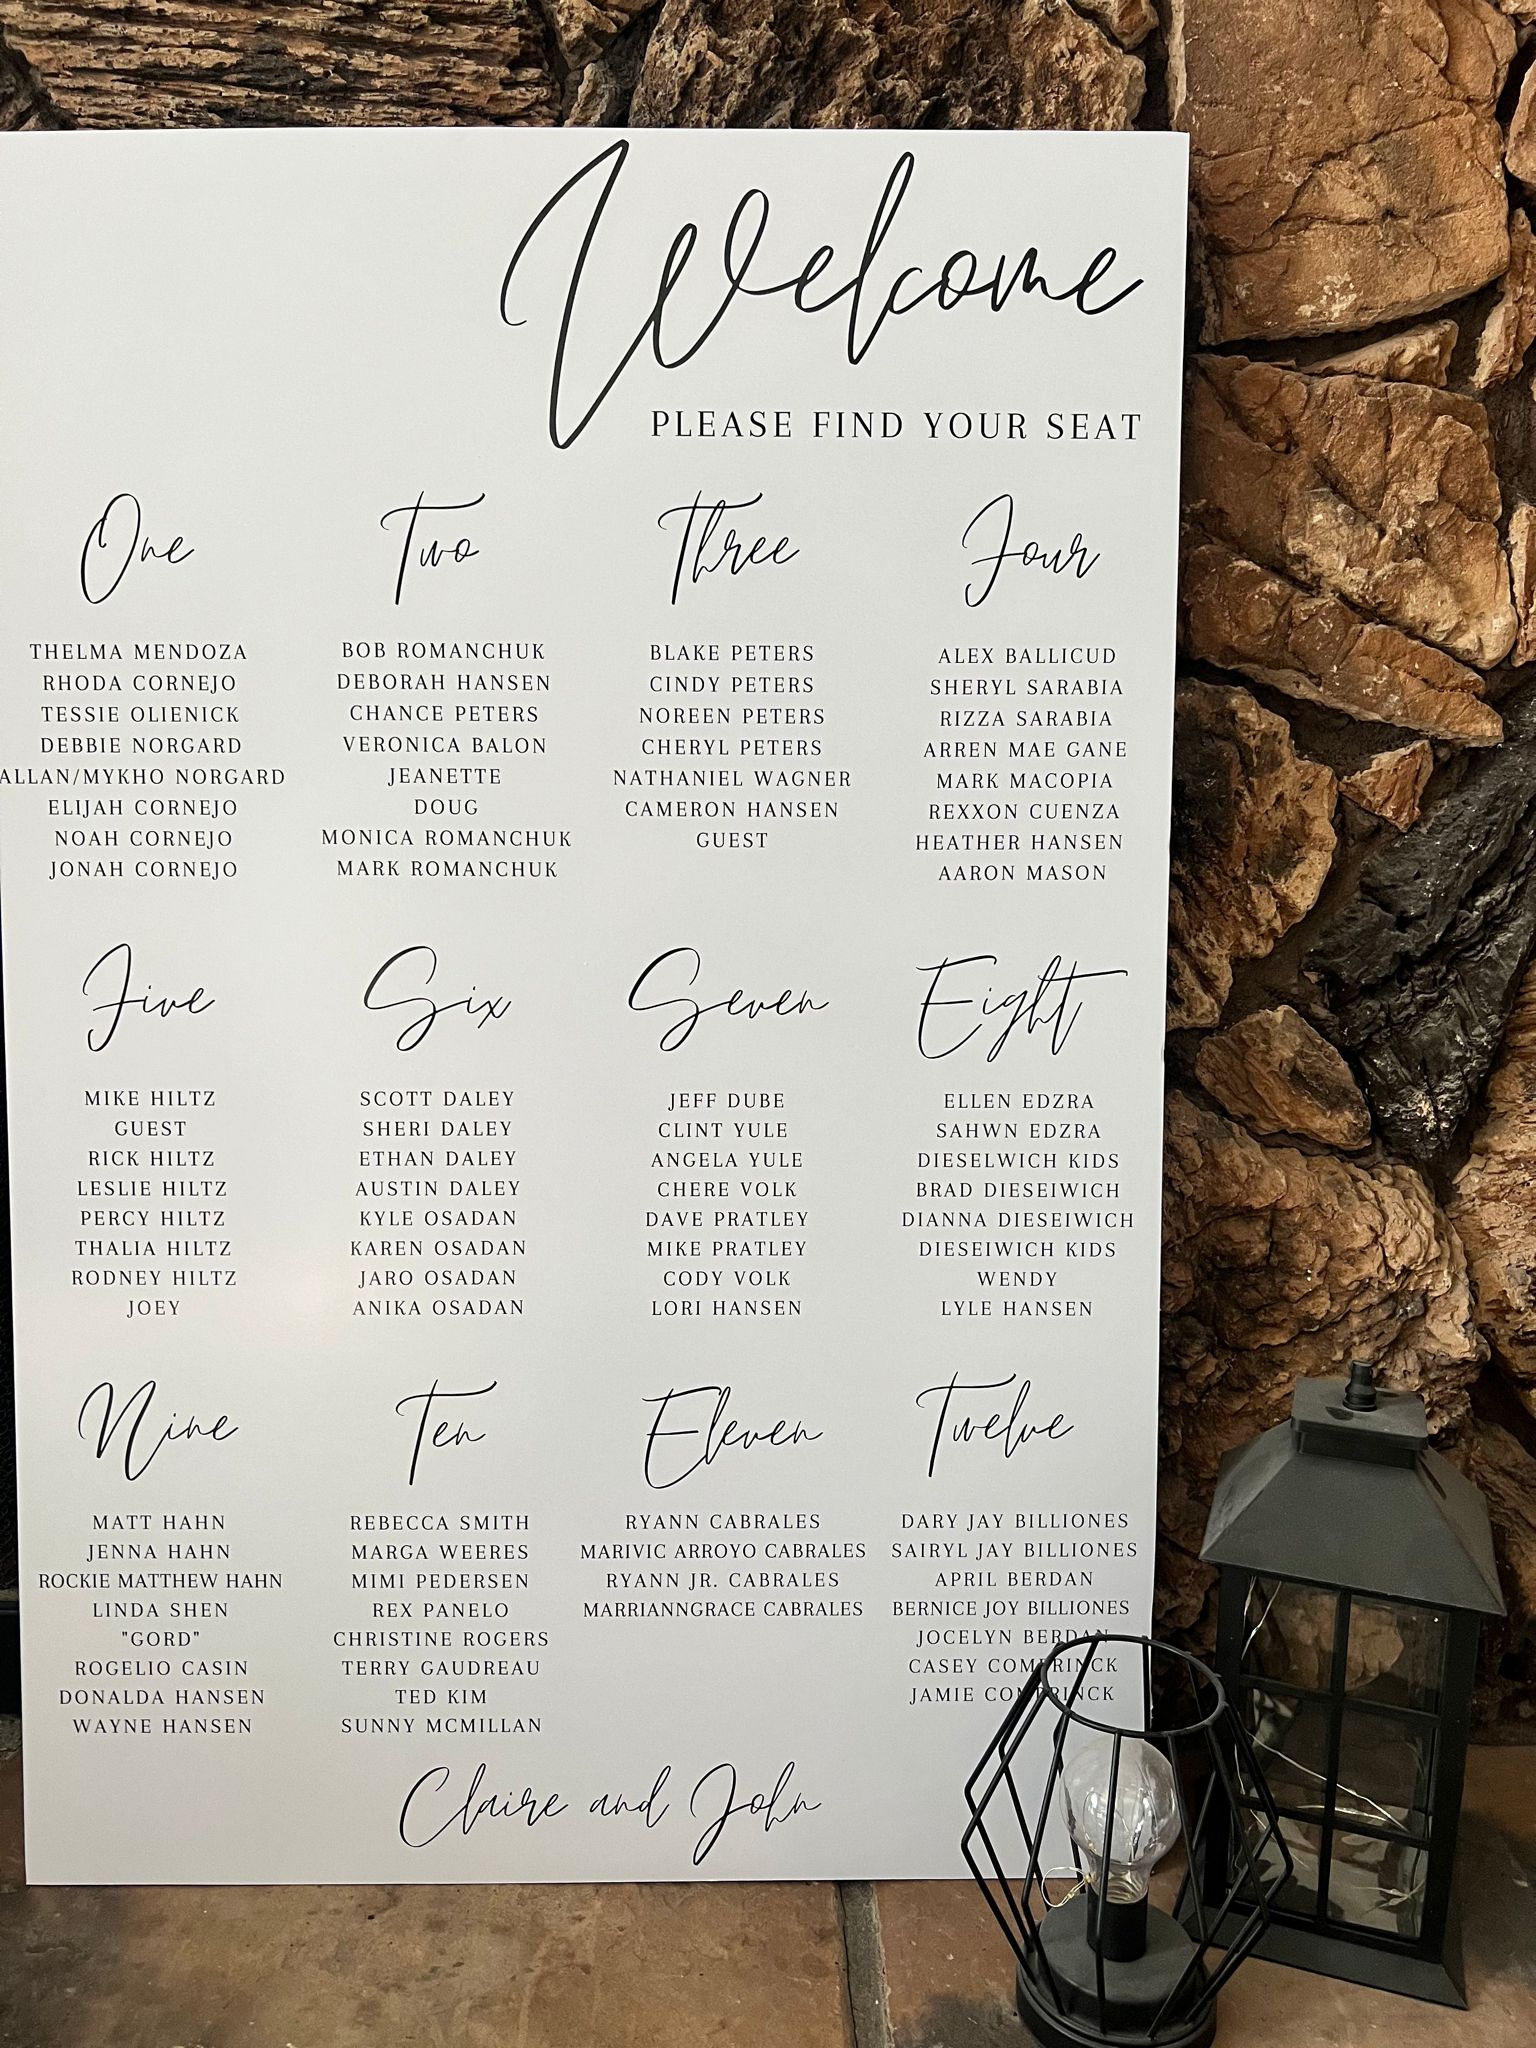 Welcome
PLEASE FIND YOUR SEAT
One
THELMA MENDOZA
RHODA CORNEJO
TESSIE OLIENICK
DEBBIE NORGARD
ALLAN/MYKHO NORGARD
ELIJAH CORNEJO
NOAH CORNEJO
JONAH CORNEJO
Two
BOB ROMANCHUK
DEBORAH HANSEN
CHANCE PETERS
VERONICA BALON
JEANETTE
DOUG
MONICA ROMANCHUK
MARK ROMANCHUK
Three
BLAKE PETERS
CINDY PETERS
NOREEN PETERS
CHERYL PETERS
NATHANIEL WAGNER
CAMERON HANSEN
GUEST
Four
ALEX BALLICUD
SHERYL SARABIA
RIZZA SARABIA
ARREN MAE GANE
MARK MACOPIA
REXXON CUENZA
HEATHER HANSEN
AARON MASON
Five
MIKE HILTZ
GUEST
RICK HILTZ
LESLIE HILTZ
PERCY HILTZ
THALIA HILTZ
RODNEY HILTZ
JOEY
Six
SCOTT DALEY
SHERI DALEY
ETHAN DALEY
AUSTIN DALEY
KYLE OSADAN
KAREN OSADAN
JARO OSADAN
ANIKA OSADAN
Seven
JEFF DUBE
CLINT YULE
ANGELA YULE
CHERE VOLK
DAVE PRATLEY
MIKE PRATLEY
CODY VOLK
LORI HANSEN
Eight
ELLEN EDZRA
SAHWN EDZRA
DIESELWICH KIDS
BRAD DIESEIWICH
DIANNA DIESEIWICH
DIESEIWICH KIDS
WENDY
LYLE HANSEN
Nine
MATT HAHN
JENNA HAHN
ROCKIE MATTHEW HAHN
LINDA SHEN
"GORD"
ROGELIO CASIN
DONALDA HANSEN
WAYNE HANSEN
Ten
REBECCA SMITH
MARGA WEERES
MIMI PEDERSEN
REX PANELO
CHRISTINE ROGERS
TERRY GAUDREAU
TED KIM
SUNNY MCMILLAN
Eleven
RYANN CABRALES
MARIVIC ARROYO CABRALES
RYANN JR. CABRALES
MARRIANNGRACE CABRALES
Twelve
DARY JAY BILLIONES
SAIRYL JAY BILLIONES
APRIL BERDAN
BERNICE JOY BILLIONES
JOCELYN BERDAN
CASEY COMBRINCK
JAMIE COMBRINCK
Claire and John